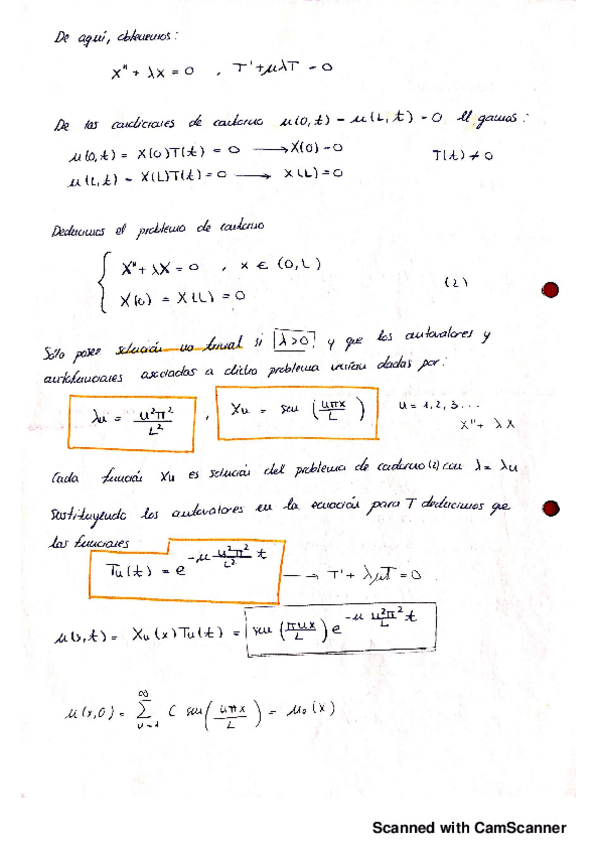 De aquí, obtenemos:
X'' + λX = 0 , T' + μλT = 0
De las condiciones de contorno u(0,t) = u(L,t) = 0 llegamos:
u(0,t) = X(0)T(t) = 0 → X(0) = 0 T(t) ≠ 0
u(L,t) = X(L)T(t) = 0 → X(L) = 0
Deducimos el problema de contorno
X'' + λX = 0 , x ∈ (0,L)
X(0) = X(L) = 0 (2)
Sólo posee solución no trivial si λ>0 y que los autovalores y
autofunciones asociadas a dicho problema vienen dadas por:
λn = n²π²/L² , Xn = sen (nπx/L) n = 1,2,3...
X'' + λX
Cada función Xn es solución del problema de contorno (2) con λ = λn
Sustituyendo los autovalores en la ecuación para T deducimos que
las funciones
Tn(t) = e^(-μ n²π²/L² t) → T' + λμT = 0
u(x,t) = Xn(x)Tn(t) = sen (πnx/L) e^(-μ n²π²/L t)
u(x,0) = ∑_{n=1}^{∞} C sen(nπx/L) = u₀(x)
Scanned with CamScanner